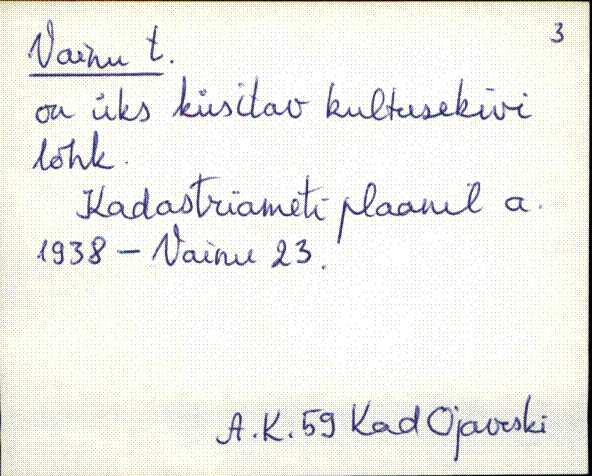 3
Vainu t.
on üks küsitav kultusekivi
lohk.
Kadastriameti plaanil a.
1938 – Vainu 23.
A.K. 59 Kad Ojaveski